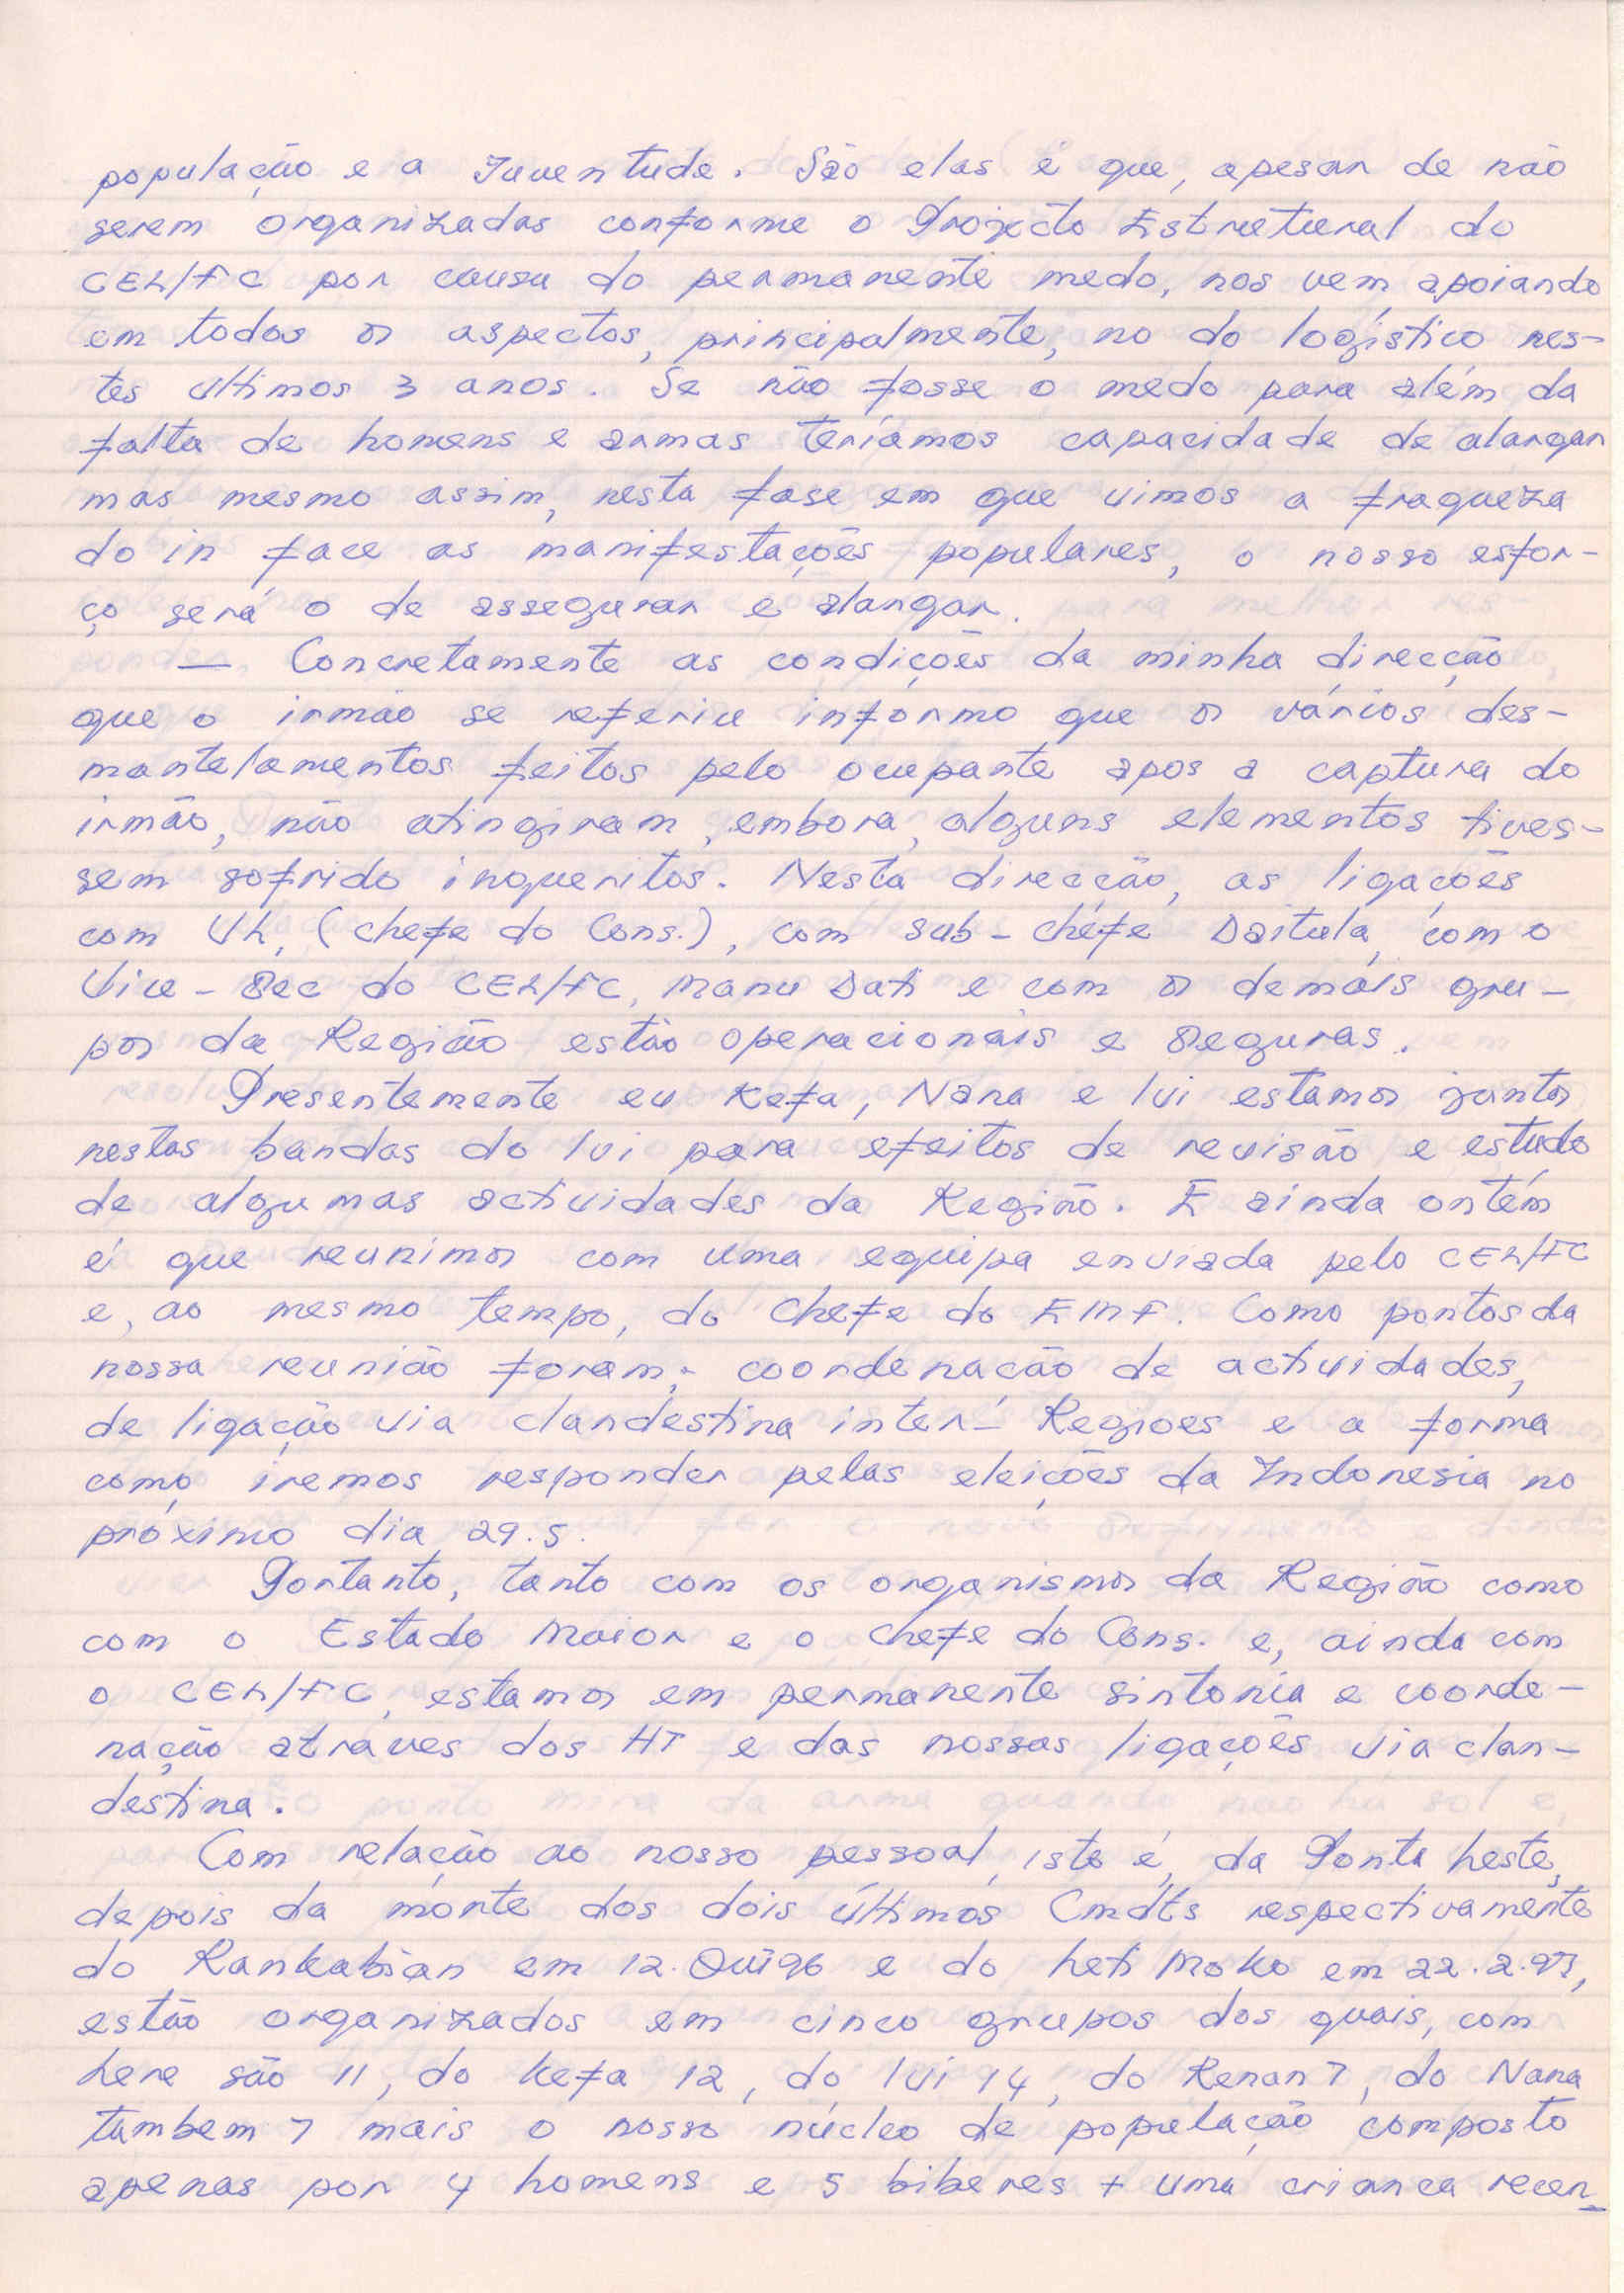 população e a Juventude. São elas é que, apesar de não
serem organizadas conforme o Projecto Estrutural do
CEL/FC por causa do permanente medo, nos vem apoiando
em todos os aspectos, principalmente, no do logístico nes-
tes ultimos 3 anos. Se não fosse o medo para além da
falta de homens e armas teríamos capacidade de alargar
mas mesmo assim, nesta fase em que vimos a fraqueza
do in face as manifestações populares, o nosso esfor-
ço será o de assegurar e alargar.
— Concretamente as condições da minha direcção
que o irmão se referiu informo que os vários des-
mantelamentos feitos pelo ocupante apos a captura do
irmão, não atingiram, embora, alguns elementos tives-
sem sofrido inqueritos. Nesta direcção, as ligações
com UL, (chefe do Cons.), com sub-chefe Daitula, com o
Vice-Sec do CEL/FC, Manu Dati e com os demais gru-
pos da Região estão operacionais e seguras.
Presentemente eu Kefa, Nana e lui estamos juntos
nestas bandas do lui para efeitos de revisão e estudo
de algumas actividades da Região. E ainda ontém
é que reunimos com uma equipa enviada pelo CEL/FC
e, ao mesmo tempo, do Chefe do EMF. Como pontos da
nossa reunião foram: coordenacão de actividades,
de ligação via clandestina inter- Regioes e a forma
como iremos responder pelas eleições da Indonesia no
próximo dia 29.5.
Portanto, tanto com os organismos da Região como
com o Estado Maior e o chefe do Cons. e, ainda com
o CEL/FC, estamos em permanente sintonia e coorde-
nação atraves dos HT e das nossas ligações via clan-
destina.
Com relação ao nosso pessoal, isto é, da Ponta Leste,
depois da morte dos dois últimos Cmdts respectivamente
do Rankabian em 12. 96 e do Leti Moko em 22.2.97,
estão organizados em cinco grupos dos quais, com
Lere são 11, do Kefa 12, do lui 14, do Renan 7, do Nana
tambem 7 mais o nosso núcleo de população composto
apenas por 4 homens e 5 biberes + uma crianca recen-